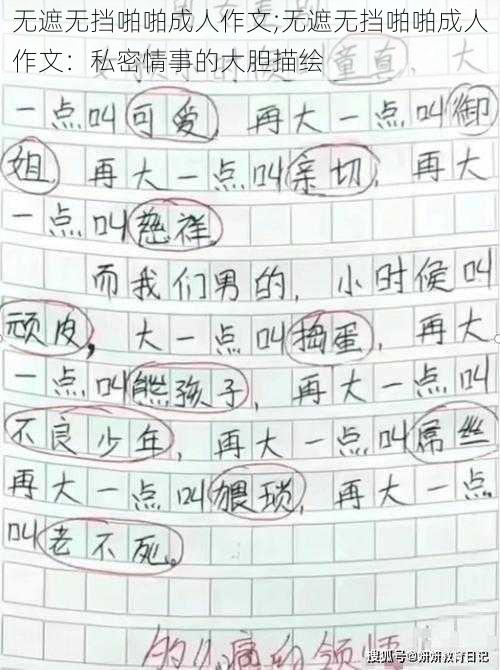 无遮无挡啪啪成人作文;无遮无挡啪啪成人
作文：私密情事的大胆描绘
童真，大
一点叫可爱，再大一点叫御
姐，再大一点叫亲切，再大
一点叫慈祥。
而我们男的，小时候叫
顽皮，大一点叫捣蛋，再大
一点叫熊孩子，再大一点叫
不良少年，再大一点叫屌丝
再大一点叫猥琐，再大一点
叫老不死。
搜狐号@妍妍教育日记